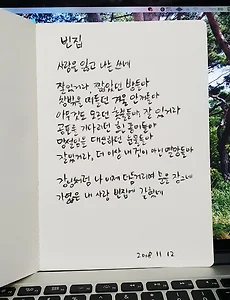 빈집
사랑을 잃고 나는 쓰네
잘있거라, 짧았던 밤들아
창밖을 떠돌던 겨울 안개들아
아무것도 모르던 촛불들아, 잘 있거라
공포를 기다리던 흰 종이들아
망설임을 대신하던 눈물들아
잘있거라, 더 이상 내 것이 아닌 열망들아
장님처럼 나 이제 더듬거리며 문을 잠그네
가엾은 내 사랑 빈집에 갇혔네
2018 11 12